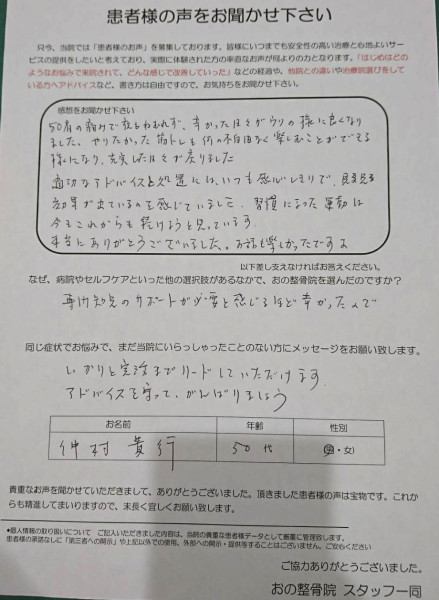 患者様の声をお聞かせ下さい
只今、当院では「患者様のお声」を募集しております。皆様にいつまでも安全性の高い治療と心地よいサー
ビスの提供をしたいと考えており、実際に体験された方の率直なお声が何よりの力となります。「はじめはど
のようなお悩みで来院されて、どんな感じで改善していった」などの経過や、他院との違いや治療院選びをして
いる方へアドバイスなど、書き方は自由ですので、お気持ちをお聞かせ下さい。
感想をお聞かせ下さい
50肩の痛みで夜もねむれず、辛かった日々がウソの様に良くなり
ました。やりたかった筋トレも何の不自由なく楽しむことができる
様になり、充実した日々が戻りました
適切なアドバイスと処置には、いつも感心しきりで、見る見る
効果が出ているのを感じていました。習慣になった運動は
今もこれからも続けようと思っています。
本当にありがとうございました。お話も楽しかったですよ
以下差し支えなければお答えください。
なぜ、病院やセルフケアといった他の選択肢があるなかで、おの整骨院を選んだのですか?
専門知見のサポートが必要と感じるほど辛かったので
同じ症状でお悩みで、まだ当院にいらっしゃったことのない方にメッセージをお願い致します。
しっかりと完治までリードしていただけます
アドバイスを守って、がんばりましょう
お名前 年齢 性別
仲村 貴行 50代 男・女
貴重なお声を聞かせていただきまして、ありがとうございました。頂きました患者様の声は宝物です。これか
らも精進してまいりますので、末長く宜しくお願い致します。
●個人情報の取り扱いについて ご記入いただきました内容は、当院の貴重な患者様データとして厳重に管理致します。
患者様の承諾なしに「第三者への開示」や上記以外での使用、外部への開示・提供等をすることはございません。ご安心ください
ご協力ありがとうございました。
おの整骨院 スタッフ一同